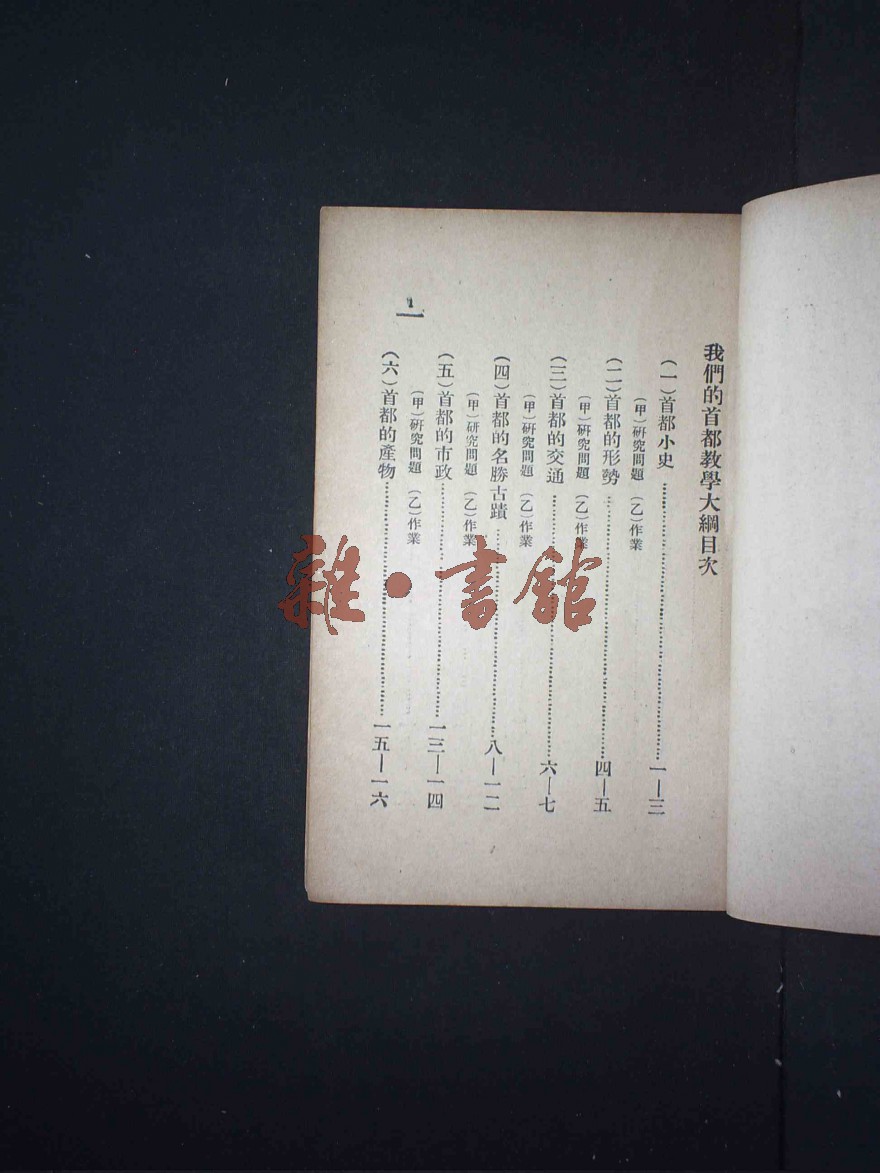 我們的首都教學大綱目次
（一）首都小史……一—三
（甲）研究問題　（乙）作業
（二）首都的形勢……四—五
（甲）研究問題　（乙）作業
（三）首都的交通……六—七
（甲）研究問題　（乙）作業
（四）首都的名勝古蹟……八—一二
（甲）研究問題　（乙）作業
（五）首都的市政……一三—一四
（甲）研究問題　（乙）作業
（六）首都的產物……一五—一六
1
雜·書館